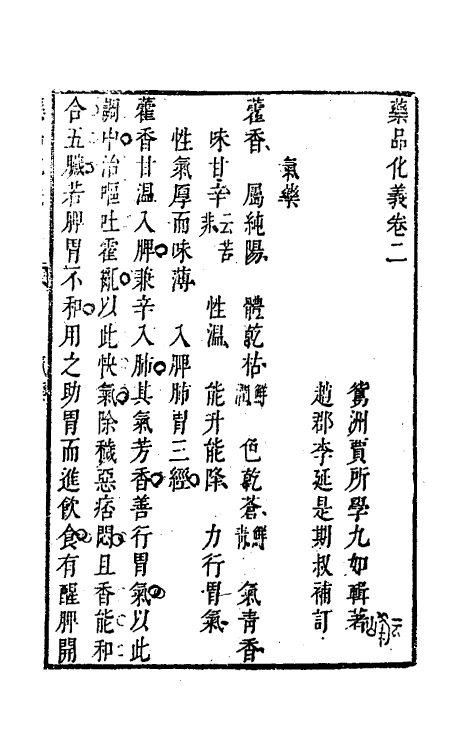 藥品化義卷二
鴛洲賈所學九如輯著
趙郡李延是期叔補訂
氣藥
藿香 屬純陽 體乾枯鮮潤 色乾蒼鮮青 氣青香
味甘辛云苦非 性溫 能升能降 力行胃氣
性氣厚而味薄 入脾肺胃三經
藿香甘溫入脾兼辛入肺其氣芳香善行胃氣以此
調中治嘔吐霍亂以此快氣除穢惡痞悶且香能和
合五臟若脾胃不和用之助胃而進飲食有醒脾開